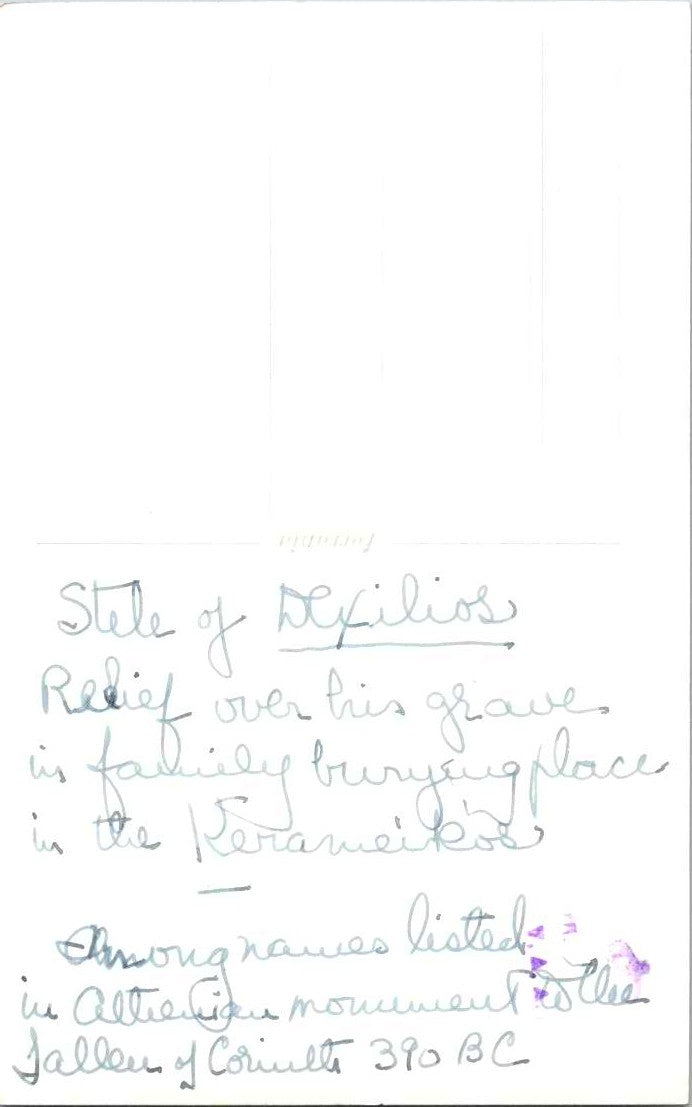 Ferrania
Stele of Dexilios
Relief over his grave
in family burying place
in the Kerameikos
Among names listed
in Athenian monument to the
fallen of Corinth 390 BC